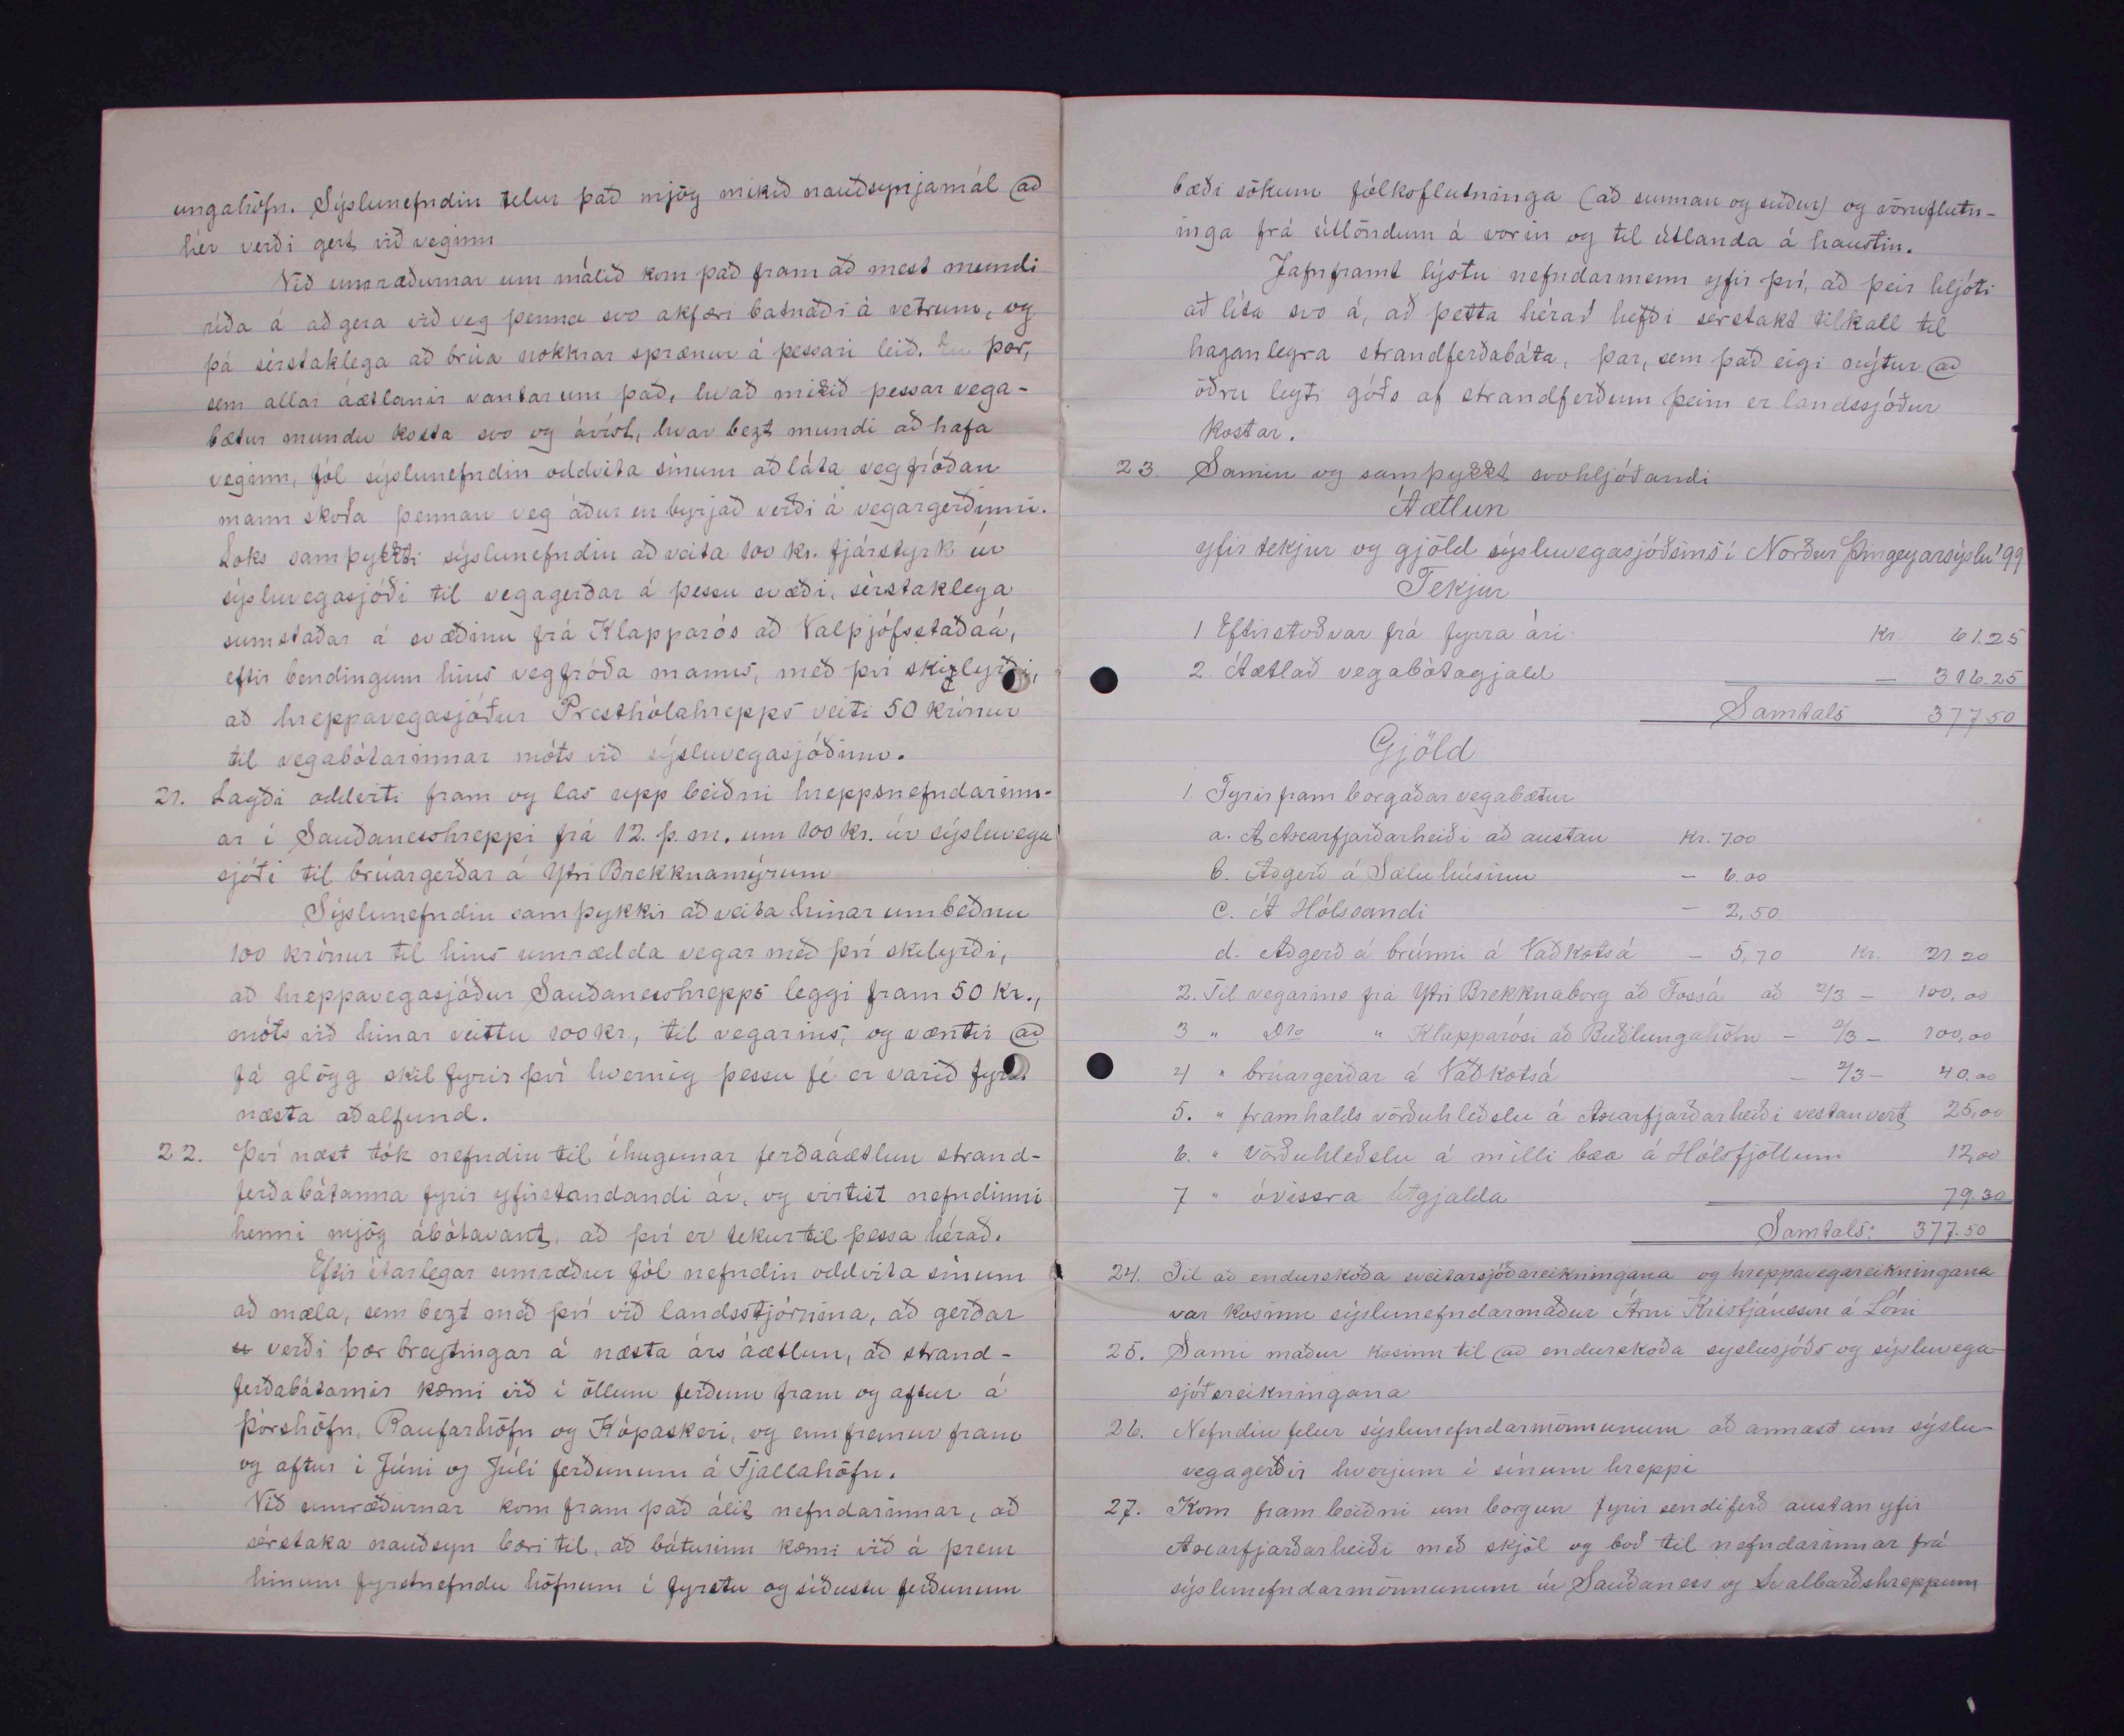 ungahöfn. Sýslunefndin telur það mjög mikið nauðsynjamál að
hér verði gert við veginn
Við umræðurnar um málið kom það fram að mest mundi
ríða á að gera við veg þenna svo akfæri batnaði á vetrum, og
þá sérstaklega að brúa nokkrar sprænur á þessari leið. þar,
sem allar áætlanir vantar um það, hvað mikið þessar vega-
bætur mundu kosta svo og óvíst, hvar bezt mundi að hafa
veginn, fól sýslunefndin oddvita sínum að láta vegfróðan
mann skoða þennan veg áður en byrjað verði á vegargerðinni.
Loks samþykkti sýslunefndin að veita 100 kr. fjárstyrk úr
sýsluvegasjóði til vegagerðar á þessu svæði, sérstaklega
sumstaðar á svæðinu frá Klapparós að Valþjófsstaðaá,
eftir bendingum hins vegfróða manns, með því skilyrði,
að hreppavegasjóður Presthólahrepps veiti 50 krónur
til vegabótarinnar móts við sýsluvegasjóðinn.
21. Lagði oddviti fram og las upp beiðni hreppsnefndarinn-
ar í Sauðaneshreppi frá 12. þ. m. um 100 kr. úr sýsluvega
sjóði til brúargerðar á Ytri Brekknamýrum
Sýslunefndin samþykkir að veita hinar umbeðnu
100 krónur til hins umrædda vegar með því skilyrði,
að hreppavegasjóður Sauðaneshrepps leggi fram 50 kr.,
móts við hinar veittu 100 kr, til vegarins, og væntir að
fá glögg skil fyrir því hvernig þessu fé er varið fyrir
næsta aðalfund.
22. Því næst tók nefndin til íhugunar ferðaáætlun strand-
ferðabátanna fyrir yfirstandandi ár, og virtist nefndinni
henni mjög ábótavant, að því er tekur til þessa hérað.
Eftir ítarlegar umræður fól nefndin oddvita sínum
að mæla, sem bezt með því við landsstjórnina, að gerðar
verði þær breytingar á næsta árs áætlun, að strand-
ferðabátarnir kæmi við í öllum ferðum fram og aftur á
Þórshöfn, Raufarhöfn og Kópaskeri, og enn fremur fram
og aftur í Júni og Júli ferðunum á Fjallahöfn.
Við umræðurnar kom fram það álit nefndarinnar, að
sérstaka nauðsyn bæri til, að báturinn kæmi við á þrem
hinum fyrstnefndu höfnum í fyrstu og síðustu ferðunum
bæði sökum fólksflutninga (að sunnan og suður) og vöruflutn-
inga frá útlöndum á vorin og til útlanda á haustin.
Jafnframt lýstu nefndarmenn yfir því, að þeir hljóti
að líta svo á, að þetta hérað hefði serstakt tilkall til
haganlegra strandferðabáta, þar, sem það eigi nýtur að
öðru leyti góðs af strandferðum þeim er landssjóður
kostar.
23. Samin og samþykkt svohljóðandi
Áætlun
yfir tekjur og gjöld sýsluvegasjóðsins í Norður Þingeyarsýslu '99
Tekjur
1 Eftirstöðvar frá fyrra ári Kr. 61.25
2. Áætlað vegabótagjald — 316.25
Samtals 377.50
Gjöld
1. Fyrirfram borgaðar vegabætur
a. Á Axarfjarðarheiði að austan Kr. 7.00
b. Aðgerð á Sæluhúsinu — 6.00
c. Á Hólssandi — 2,50
d. Aðgerð á brúnni á Vaðkotsá — 5,70 Kr. 21.20
2. Til vegarins frá Ytri Brekknaborg að Fossá að 2/3 — 100,00
3 " Dto " Klapparósi að Buðlungahöfn — 2/3 — 100,00
4 " brúargerðar á Vaðkotsá — 2/3 — 40.00
5. " framhalds vörðuhleðslu á Axarfjarðarheiði vestanvert 25,00
6. " Vörðuhleðslu á milli bæa á Hólsfjöllum 12,00
7 " óvissra Útgjalda 79.30
Samtals: 377.50
24. Til að endurskoða sveitarsjóðareikningana og hreppavegareikningana
var kosinn sýslunefndarmaður Árni Kristjánsson á Lóni
25. Sami maður kosinn til að endurskoða syslusjóðs og sýsluvega-
sjóðsreikningana
26. Nefndin felur sýslunefndarmönnunum að annast um sýslu-
vegagerðir hverjum í sínum hreppi
27. Kom fram beiðni um borgun fyrir sendiferð austan yfir
Axarfjarðarheiði með skjöl og boð til nefndarinnar frá
sýslunefndarmönnunum úr Sauðaness og Svalbarðshreppum